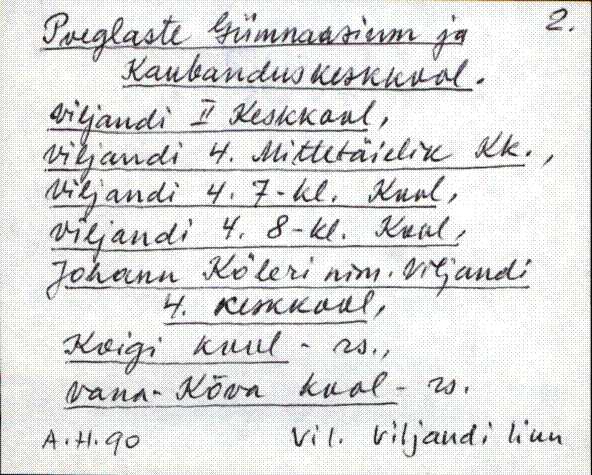 2.
Poeglaste Gümnaasium ja
Kaubanduskeskkool.
Viljandi II Keskkool,
Viljandi 4. Mittetäielik Kk.,
Viljandi 4. 7-kl. Kool,
Viljandi 4. 8-kl. Kool,
Johann Köleri nim. Viljandi
4. Keskkool,
Koigi kool - rs.,
Vana-Kõva kool - rs.
A.H.90 Vil. Viljandi linn